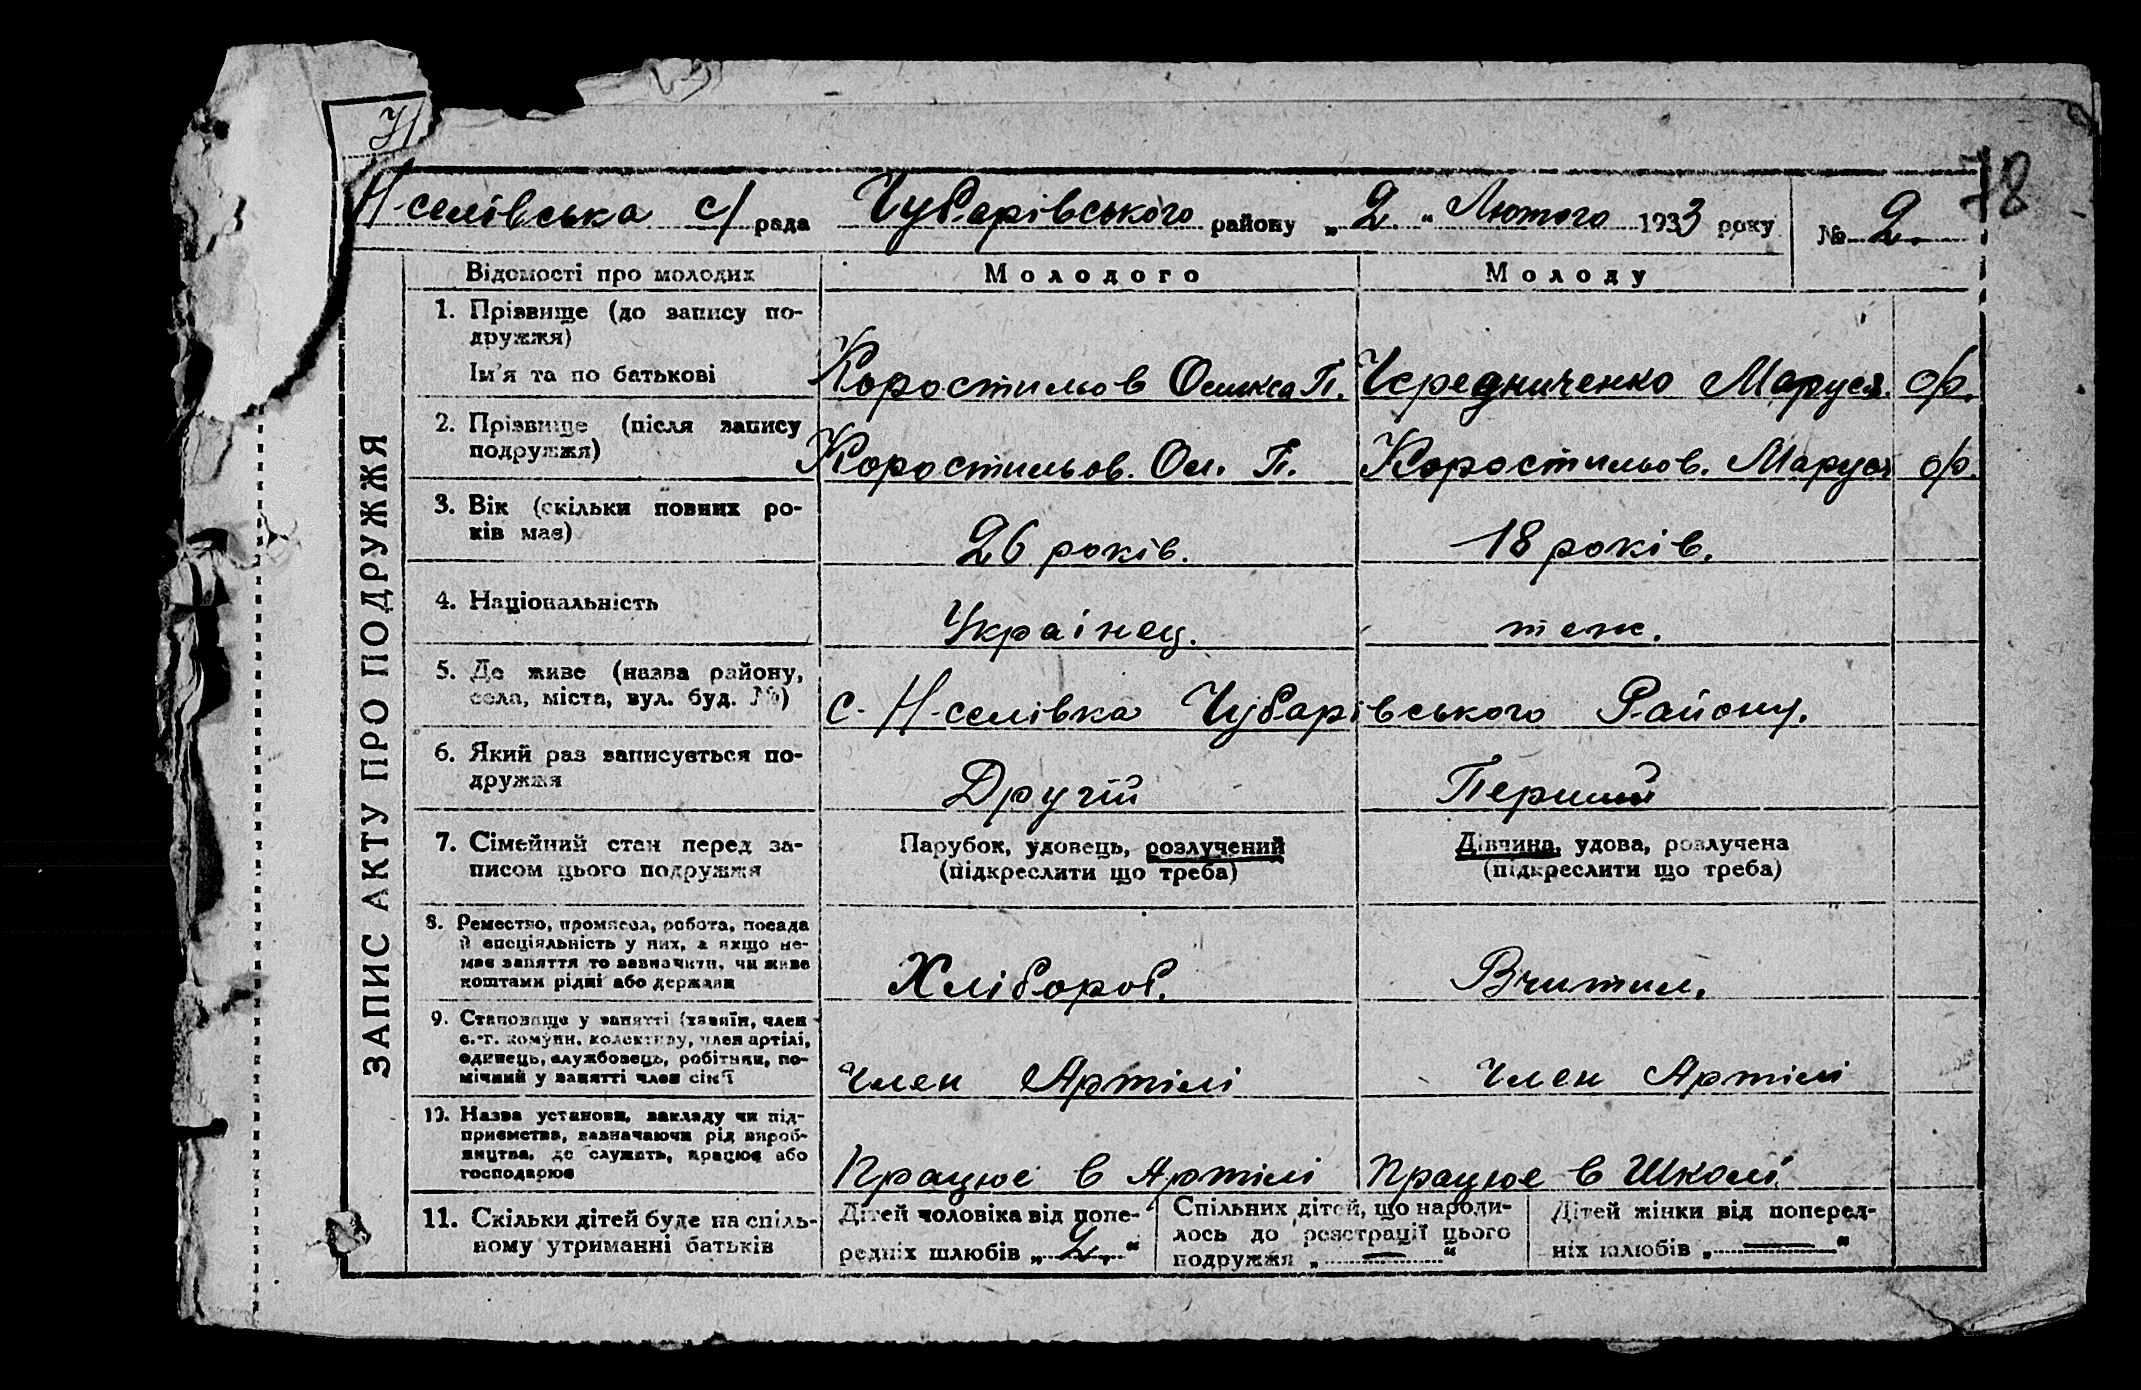 71
Н-селівська с/ рада Чубарівського району „2“ Лютого 1933 року № 2.
78
ЗАПИС АКТУ ПРО ПОДРУЖЖЯ
Відомості про молодих Молодого Молоду
1. Прізвище (до запису по-
дружжя)
Ім'я та по батькові Коростильов П. Чередниченко Маруся ф.
2. Прізвище (після запису
подружжя) Коростильов. Ол. П. Коростильов. Маруся ф.
3. Вік (скільки повних ро-
ків має) 26 років. 18 років.
4. Національність Українец. теж.
5. Де живе (назва району,
села, міста, вул. буд. №) с. Н-селівка Чубарівського Району.
6. Який раз записується по-
дружжя Другій Перший
7. Сімейний стан перед за-
писом цього подружжя Парубок, удовець, розлучений Дівчина, удова, розлучена
(підкреслити що треба) (підкреслити що треба)
8. Ремество, промисел, робота, посада
й спеціяльність у них, а якщо не-
має заняття то зазначити, чи живе
коштами рідні або держави Хлібороб. Вчител.
9. Становище у занятті (хазяїн, член
с.-г. комуни, колективу, член артілі,
одинець, службовець, робітник, по-
мічний у занятті член сім'ї Член Артілі Член Артілі
10. Назва установи, закладу чи під-
приємства, зазначаючи рід вироб-
ництва, де служать, працює або
господарює Працює в Артілі Працює в Школі
11. Скільки дітей буде на спіль-
ному утриманні батьків
Дітей чоловіка від попе-
редніх шлюбів „2.“
Спільних дітей, що народи-
лось до реєстрації цього
подружжя „—“
Дітей жінки від поперед-
ніх шлюбів „—“